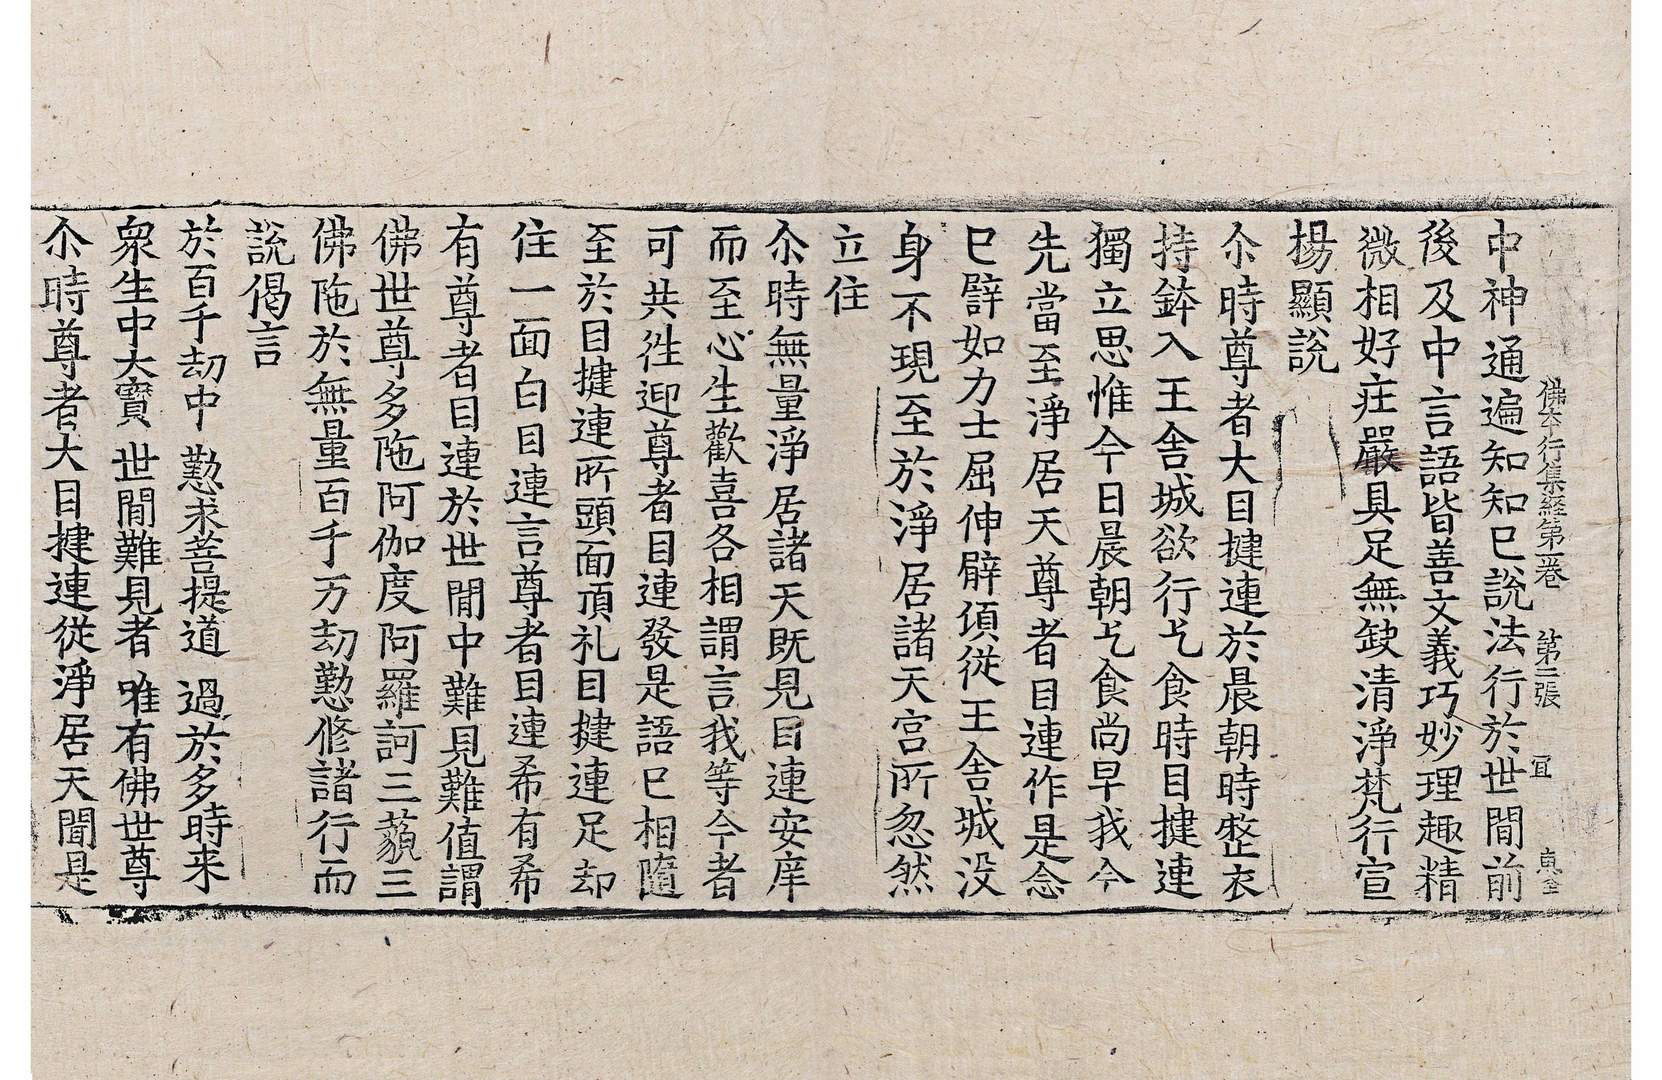 佛本行集經第一卷 第三張 冝
中神通遍知知已說法行於世間前
後及中言語皆善文義巧妙理趣精
微相好庄嚴具足無缺清淨梵行宣
揚顯說
尒時尊者大目揵連於晨朝時整衣
持鉢入王舍城欲行乞食時目揵連
獨立思惟今日晨朝乞食尚早我今
先當至淨居天尊者目連作是念
已譬如力士屈伸臂頃從王舍城没
身不現至於淨居諸天宮所忽然
立住
尒時無量淨居諸天既見目連安庠
而至心生歡喜各相謂言我等今者
可共徃迎尊者目連發是語已相隨
至於目揵連所頭面頂礼目揵連足却
住一面白目連言尊者目連希有希
有尊者目連於世間中難見難值謂
佛世尊多陁阿伽度阿羅訶三藐三
佛陁於無量百千万劫懃修諸行而
說偈言
於百千劫中 懃求菩提道 過於多時来
衆生中大寶 世間難見者 唯有佛世尊
尒時尊者大目揵連從淨居天聞是